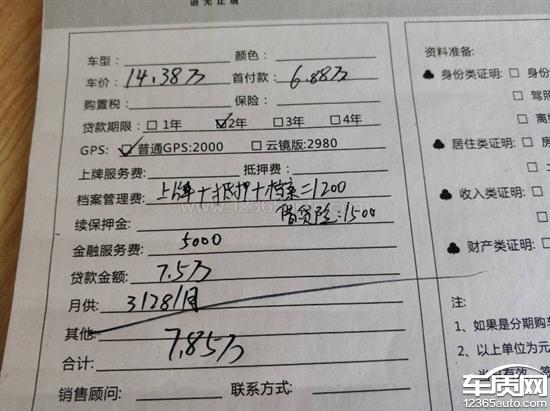 车型: 颜色:
车价: 14.38万 首付款: 6.88万
购置税: 保险:
贷款期限: □1年 ☑2年 □3年 □4年
GPS: ☑普通GPS:2000 □云镜版:2980
上牌服务费: 抵押费:
档案管理费: 上牌+抵押+档案=1200
续保押金: 借贷险:1500
金融服务费: 5000
贷款金额: 7.5万
月供: 3128/月
其他:
合计: 7.85万
销售顾问: 联系方式:
资料准备:
♣ 身份类证明: □
□ 驾照
□
♣ 居住类证明: □
□
♣ 收入类证明: □
□
♣ 财产类证明: □
注:
1、如果是分期购车
2、以上单位为元
www.12365auto.com
车质网
12365auto.com